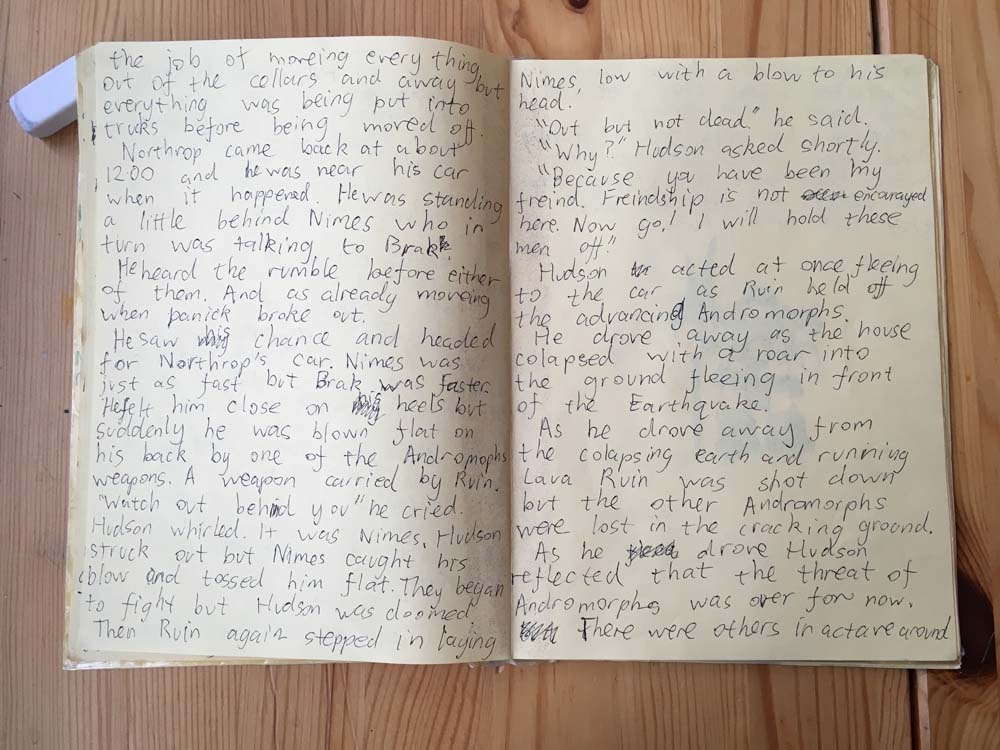 the job of moveing every thing
out of the cellars and away but
everything was being put into
trucks before being moved off.
Northrop came back at about
12:00 and he was near his car
when it happened. He was standing
a little behind Nimes who in
turn was talking to Brak.
He heard the rumble before either
of them. And as already moveing
when panick broke out.
He saw his chance and headed
for Northrop's car. Nimes was
just as fast but Brak was faster.
He felt him close on his heels but
suddenly he was blown flat on
his back by one of the Andromophs
weapons. A weapon carried by Ruin.
"Watch out behind you" he cried.
Hudson whirled. It was Nimes. Hudson
struck out but Nimes caught his
blow and tossed him flat. They began
to fight but Hudson was doomed.
Then Ruin again stepped in laying
Nimes, low with a blow to his
head.
"Out but not dead." he said.
"Why?" Hudson asked shortly.
"Because you have been my
freind. Freindship is not encourayed
here. Now go! I will hold these
men off"
Hudson acted at once fleeing
to the car as Ruin held off
the advancing Andromorphs.
He drove away as the house
colapsed with a roar into
the ground fleeing in front
of the Earthquake.
As he drove away from
the colapsing earth and running
Lava Ruin was shot down
but the other Andromorphs
were lost in the cracking ground.
As he drove Hudson
reflected that the threat of
Andromorphs was over for now.
There were others in actave around